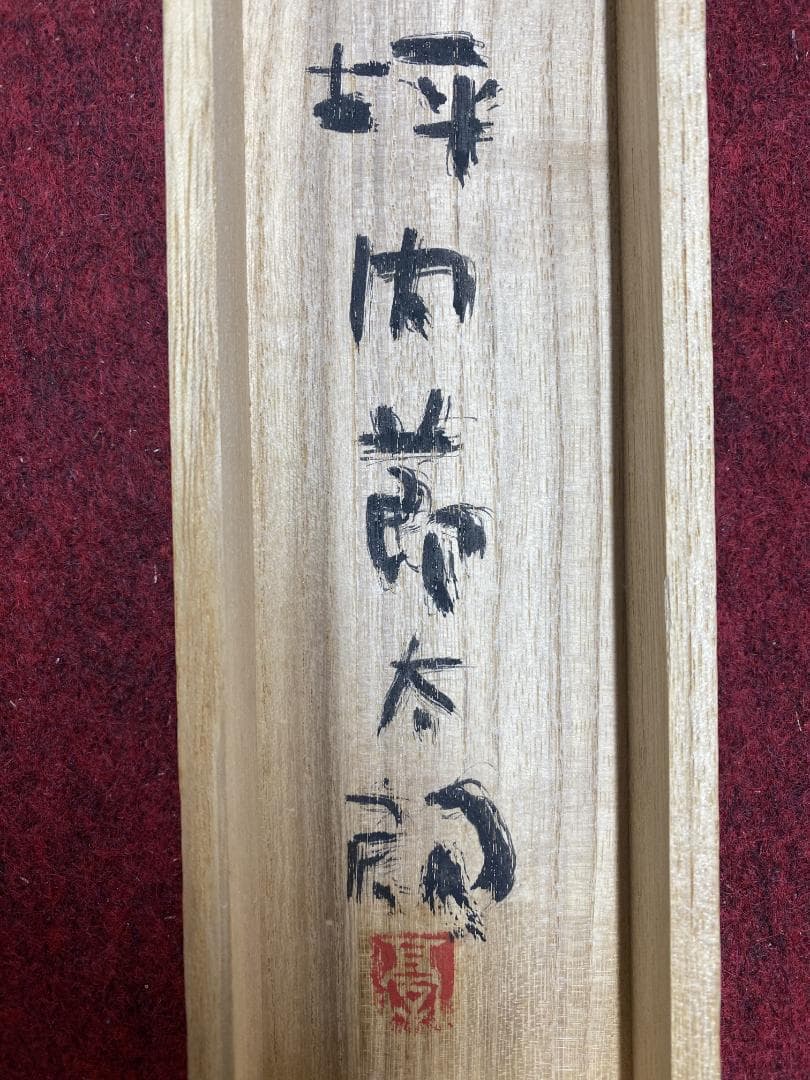 坪内節太郎